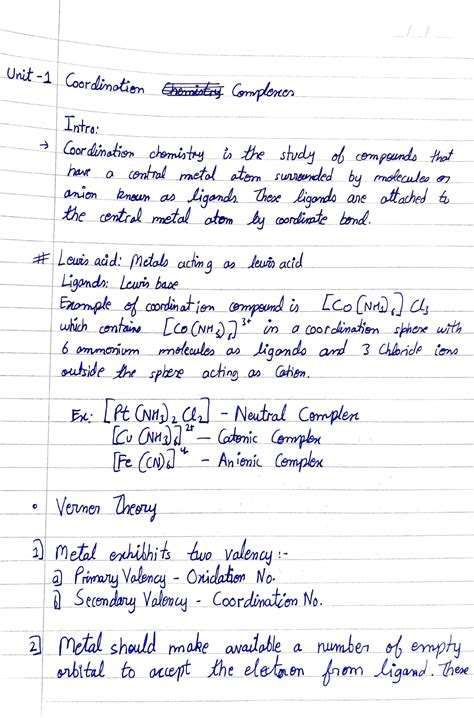 Unit-1 Coordination Chemistry Complexes
Intro:
→ Coordination chemistry is the study of compounds that
have a central metal atom surrounded by molecules or
anion known as ligands. These ligands are attached to
the central metal atom by coordinate bond.
# Lewis acid: Metals acting as lewis acid
Ligands: Lewis base
Example of coordination compound is [Co(NH₃)₆]Cl₃
which contains [Co(NH₃)₆]³⁺ in a coordination sphere with
6 ammonium molecules as ligands and 3 Chloride ions
outside the sphere acting as Cation.
Ex: [Pt(NH₃)₂Cl₂] - Neutral Complex
[Cu(NH₃)₆]²⁺ - Cationic Complex
[Fe(CN)₆]⁴⁻ - Anionic Complex
• Verner Theory
1] Metal exhibhits two valency:-
a) Primary Valency - Oxidation No.
b) Secondary Valency - Coordination No.
2] Metal should make available a number of empty
orbital to accept the electron from ligand. These